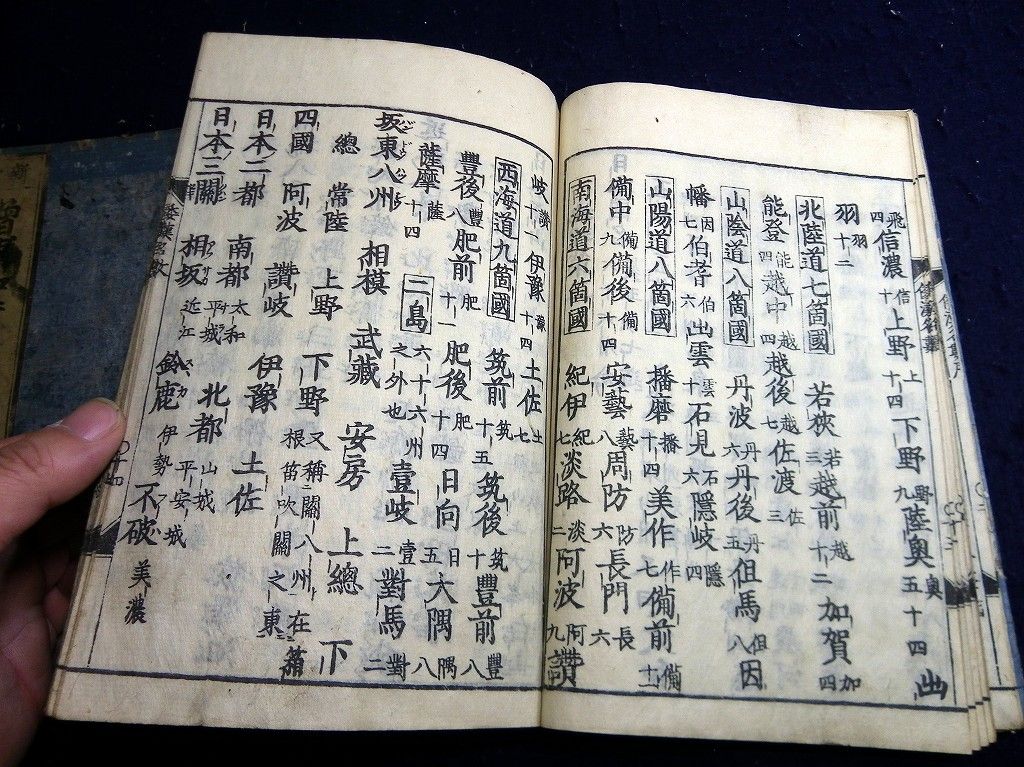 飛四信濃信十上野上十四下野野九陸奧奧五十四出
羽羽十二
北陸道七箇國 若狹若三越前越十二加賀加四
能登能四越中越四越後越七佐渡佐三
山陰道八箇國 丹波丹六丹後丹五但馬但八因
幡因七伯耆伯六出雲雲十石見石六隱岐隱四
山陽道八箇國 播磨播十四美作作七備前備十一
備中備九備後備十四安藝藝八周防防六長門長六
南海道六箇國 紀伊紀七淡路淡二阿波阿九讚
岐讚十一伊豫豫十四土佐土七
西海道九箇國 筑前筑十五筑後筑十豐前豐八
豐後豐八肥前肥十一肥後肥十四日向日五大隅隅八
薩摩薩十四 二島 六十六州之外也 壹岐壹二對馬對二
坂東八州 相模 武藏 安房 上總 下
總 常陸 上野 下野 又稱關八州在箱根笛吹關之東
四國 阿波 讚岐 伊豫 土佐
日本二都 南都太和平城 北都山城平安城
日本三關 相坂近江 鈴鹿伊勢 不破美濃